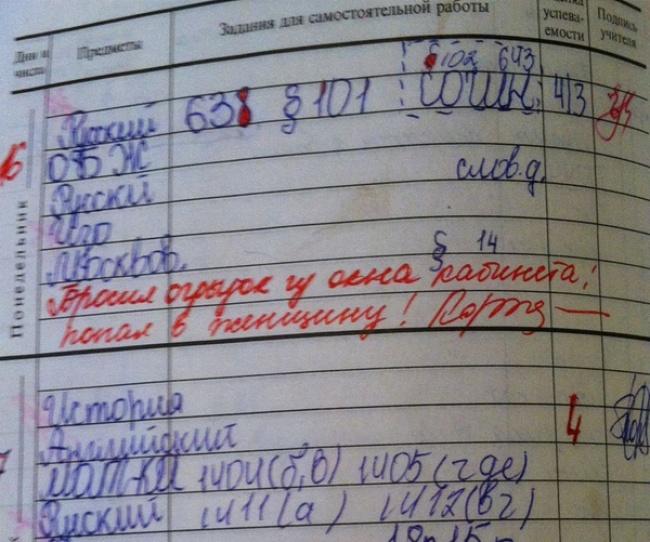 Дни и числа
Предметы
Задания для самостоятельной работы
успева-
емости
Подпись
учителя
Понедельник
16
102 643
Русский 638 § 101 сочин. 4/3
ОБЖ
Русский слов.д.
Изо
Москвов. § 14
Бросил огрызок из окна кабинета!
попал в женщину!
История
Английский 4
мат-ка 1404(б,в) 1405(где)
Русский 1411(а) 1412(вг)